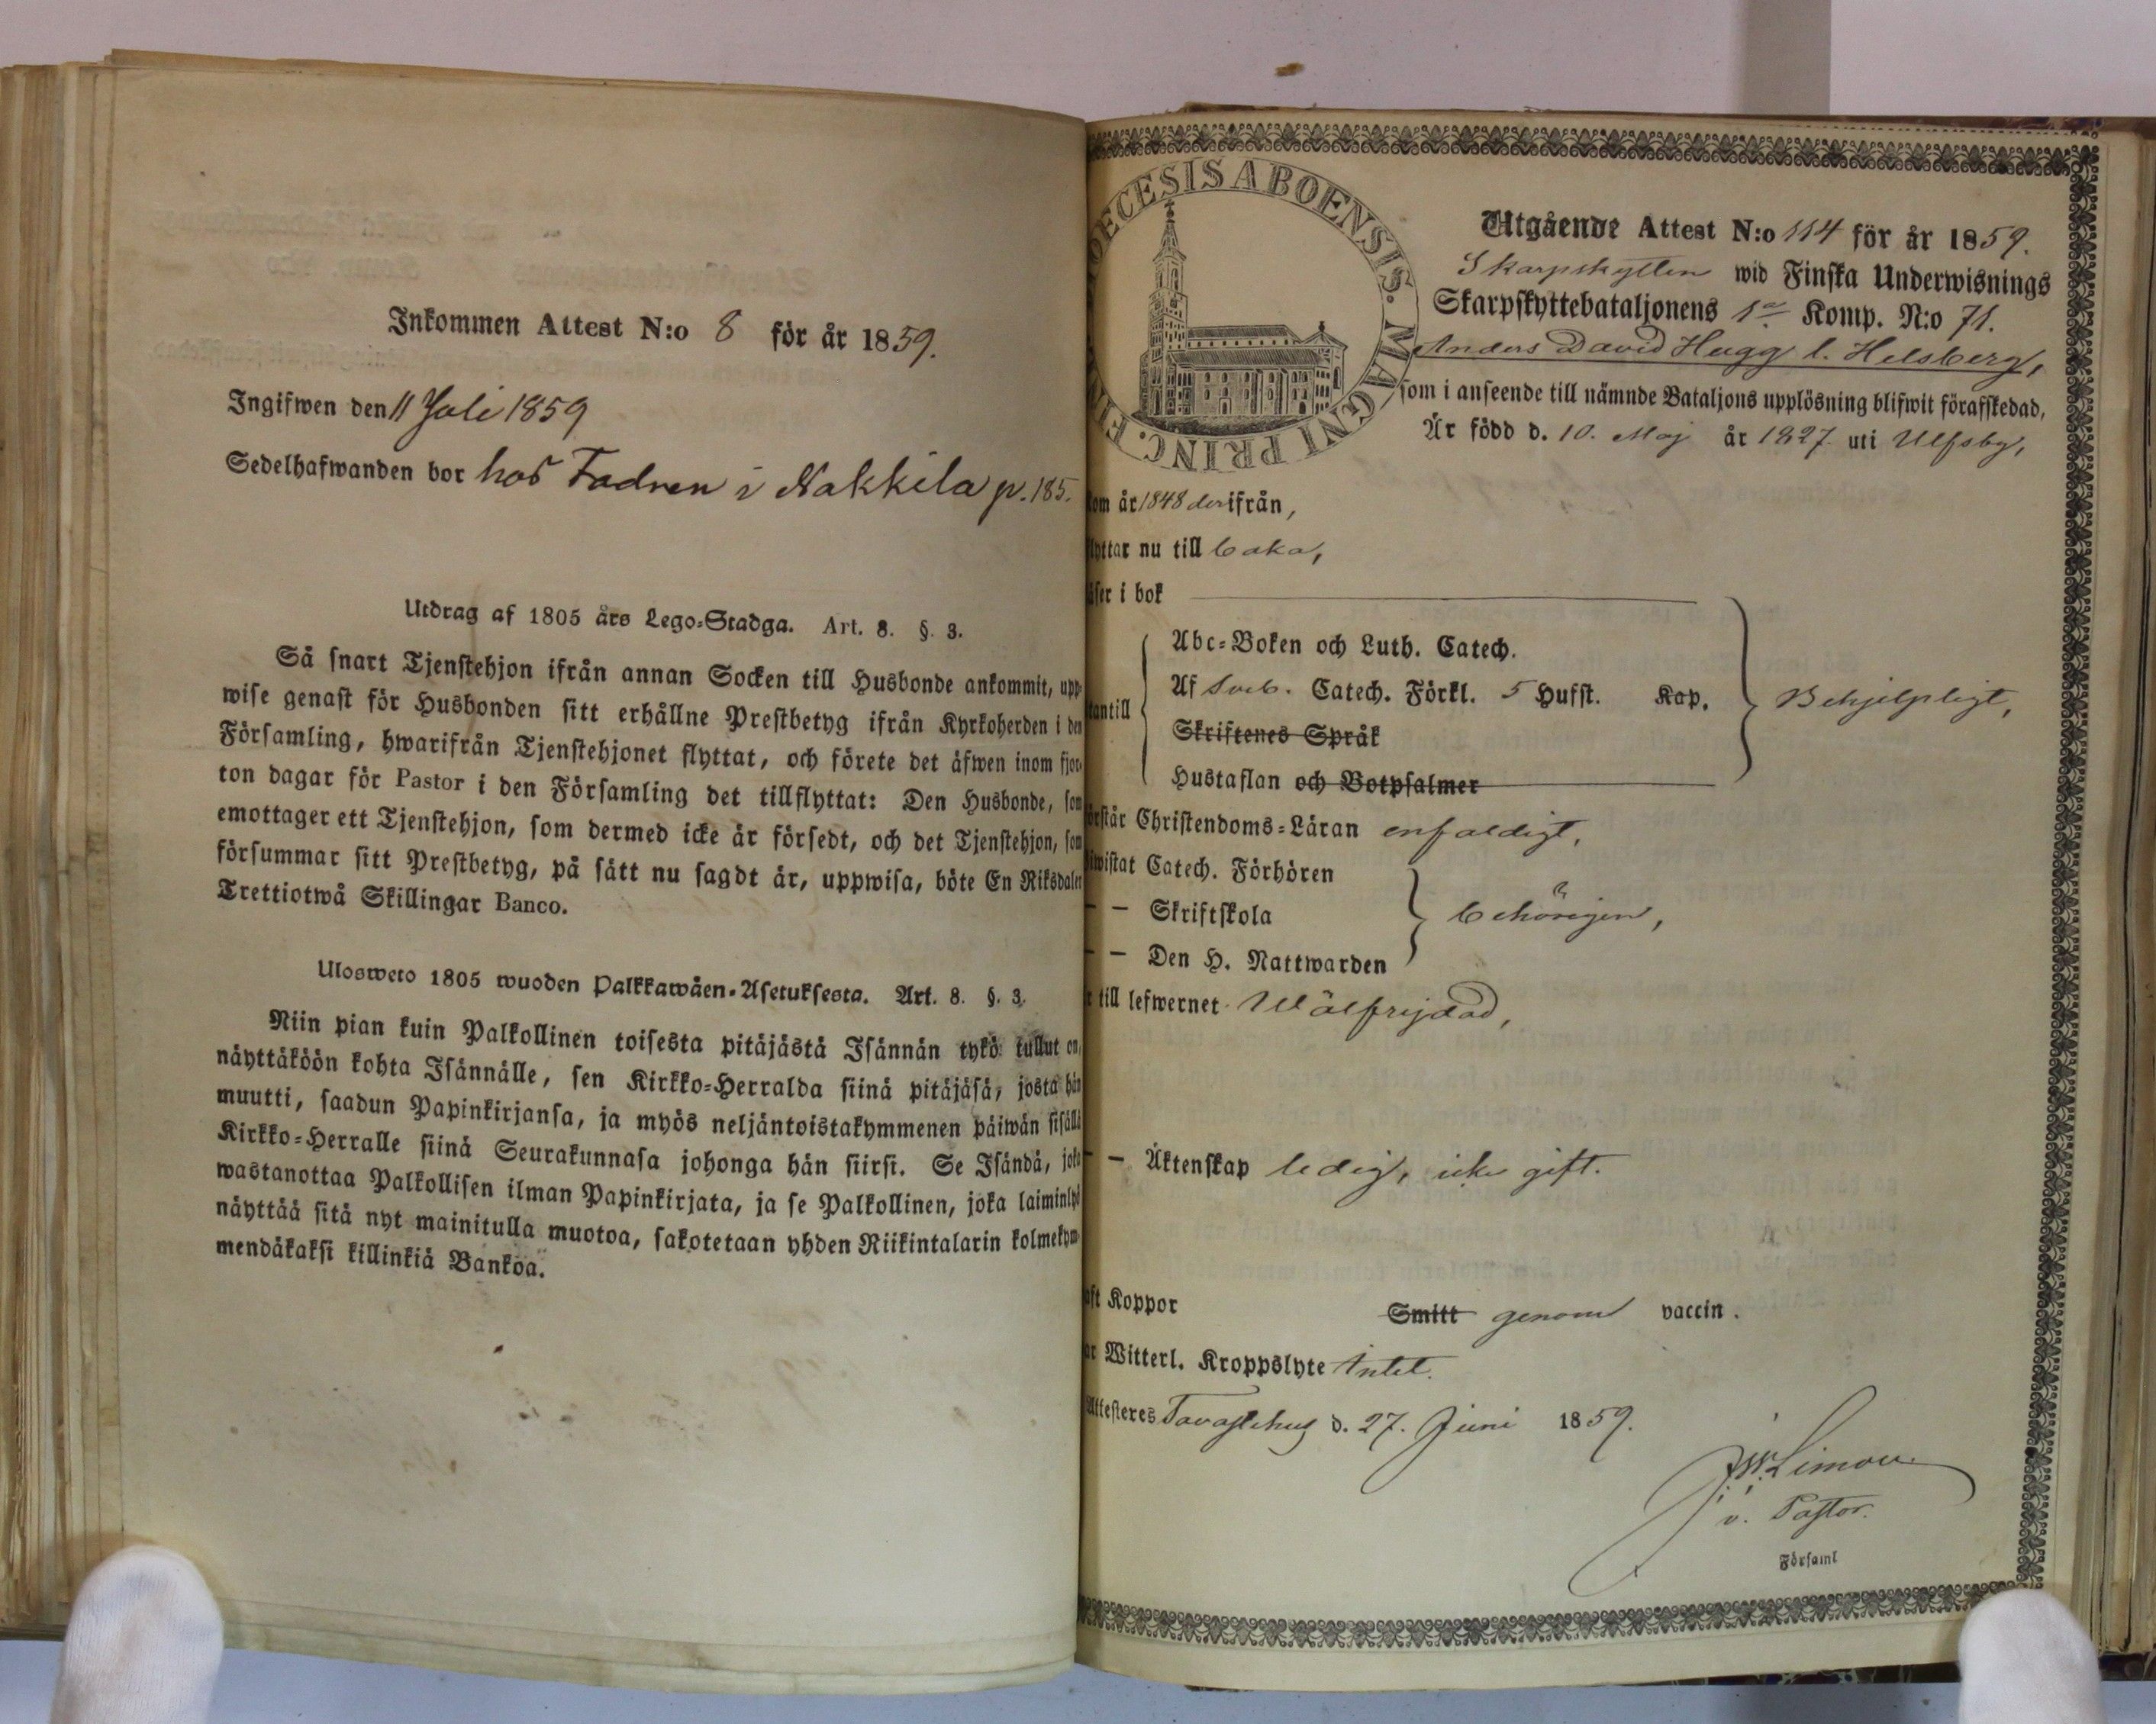 Inkommen Attest N:o 8 för år 1859.
Ingifwen den 11 Juli 1859
Sedelhafwanden bor hos Fadren i Nakkila p. 185.
Utdrag af 1805 års Lego-Stadga. Art. 8. §. 3.
Så snart Tjenstehjon ifrån annan Socken till Husbonde ankommit, upp-
wise genast för Husbonden sitt erhållne Prestbetyg ifrån Kyrkoherden i den
Församling, hwarifrån Tjenstehjonet flyttat, och förete det äfwen inom fjor-
ton dagar för Pastor i den Församling det tillflyttat: Den Husbonde, som
emottager ett Tjenstehjon, som dermed icke är försedt, och det Tjenstehjon, som
försummar sitt Prestbetyg, på sätt nu sagdt är, uppwisa, böte En Riksdaler
Trettiotwå Skillingar Banco.
Ulosweto 1805 wuoden Palkkawäen-Asetuksesta. Art. 8. §. 3.
Niin pian kuin Palkollinen toisesta pitäjästä Isännän tykö tullut on,
näyttäköön kohta Isännälle, sen Kirkko-Herralda siinä pitäjäsä, josta hän
muutti, saadun Papinkirjansa, ja myös neljäntoistakymmenen päiwän sisällä
Kirkko-Herralle siinä Seurakunnasa johonga hän siirsi. Se Isändä, joka
wastanottaa Palkollisen ilman Papinkirjata, ja se Palkollinen, joka laiminlyö
näyttää sitä nyt mainitulla muotoa, sakotetaan yhden Riikintalarin kolmekym-
mendäkaksi killinkiä Bankoa.
DECESIS ABOENSIS. MAGNI PRINC. FIN
Utgående Attest N:o 114 för år 1859.
Skarpskytten wid Finska Underwisnings
Skarpskyttebataljonens 1a Komp. N:o 71.
Anders David Hugg l. Helsberg,
som i anseende till nämnde Bataljons upplösning blifwit förafskedad,
Är född d. 10. Maj år 1827 uti Ulfsby,
kom år 1848 derifrån,
flyttar nu till baka,
läser i bok
Abc-Boken och Luth. Catech.
utantill Af Sveb. Catech. Förkl. 5 Hufst. Kap. Behjelpligt,
Skriftenes Språk
Hustaflan och Botpsalmer
förstår Christendoms-Läran enfaldigt,
bewistat Catech. Förhören
— — Skriftskola behörigen,
— — Den H. Nattwarden
r till lefwernet Wälfrejdad,
— — Äktenskap ledig, icke gift.
aft Koppor Smitt genom vaccin.
ar Witterl. Kroppslyte Intet.
Attesteres Tavastehus d. 27. Juni 1859.
v. Pastor.
Församl